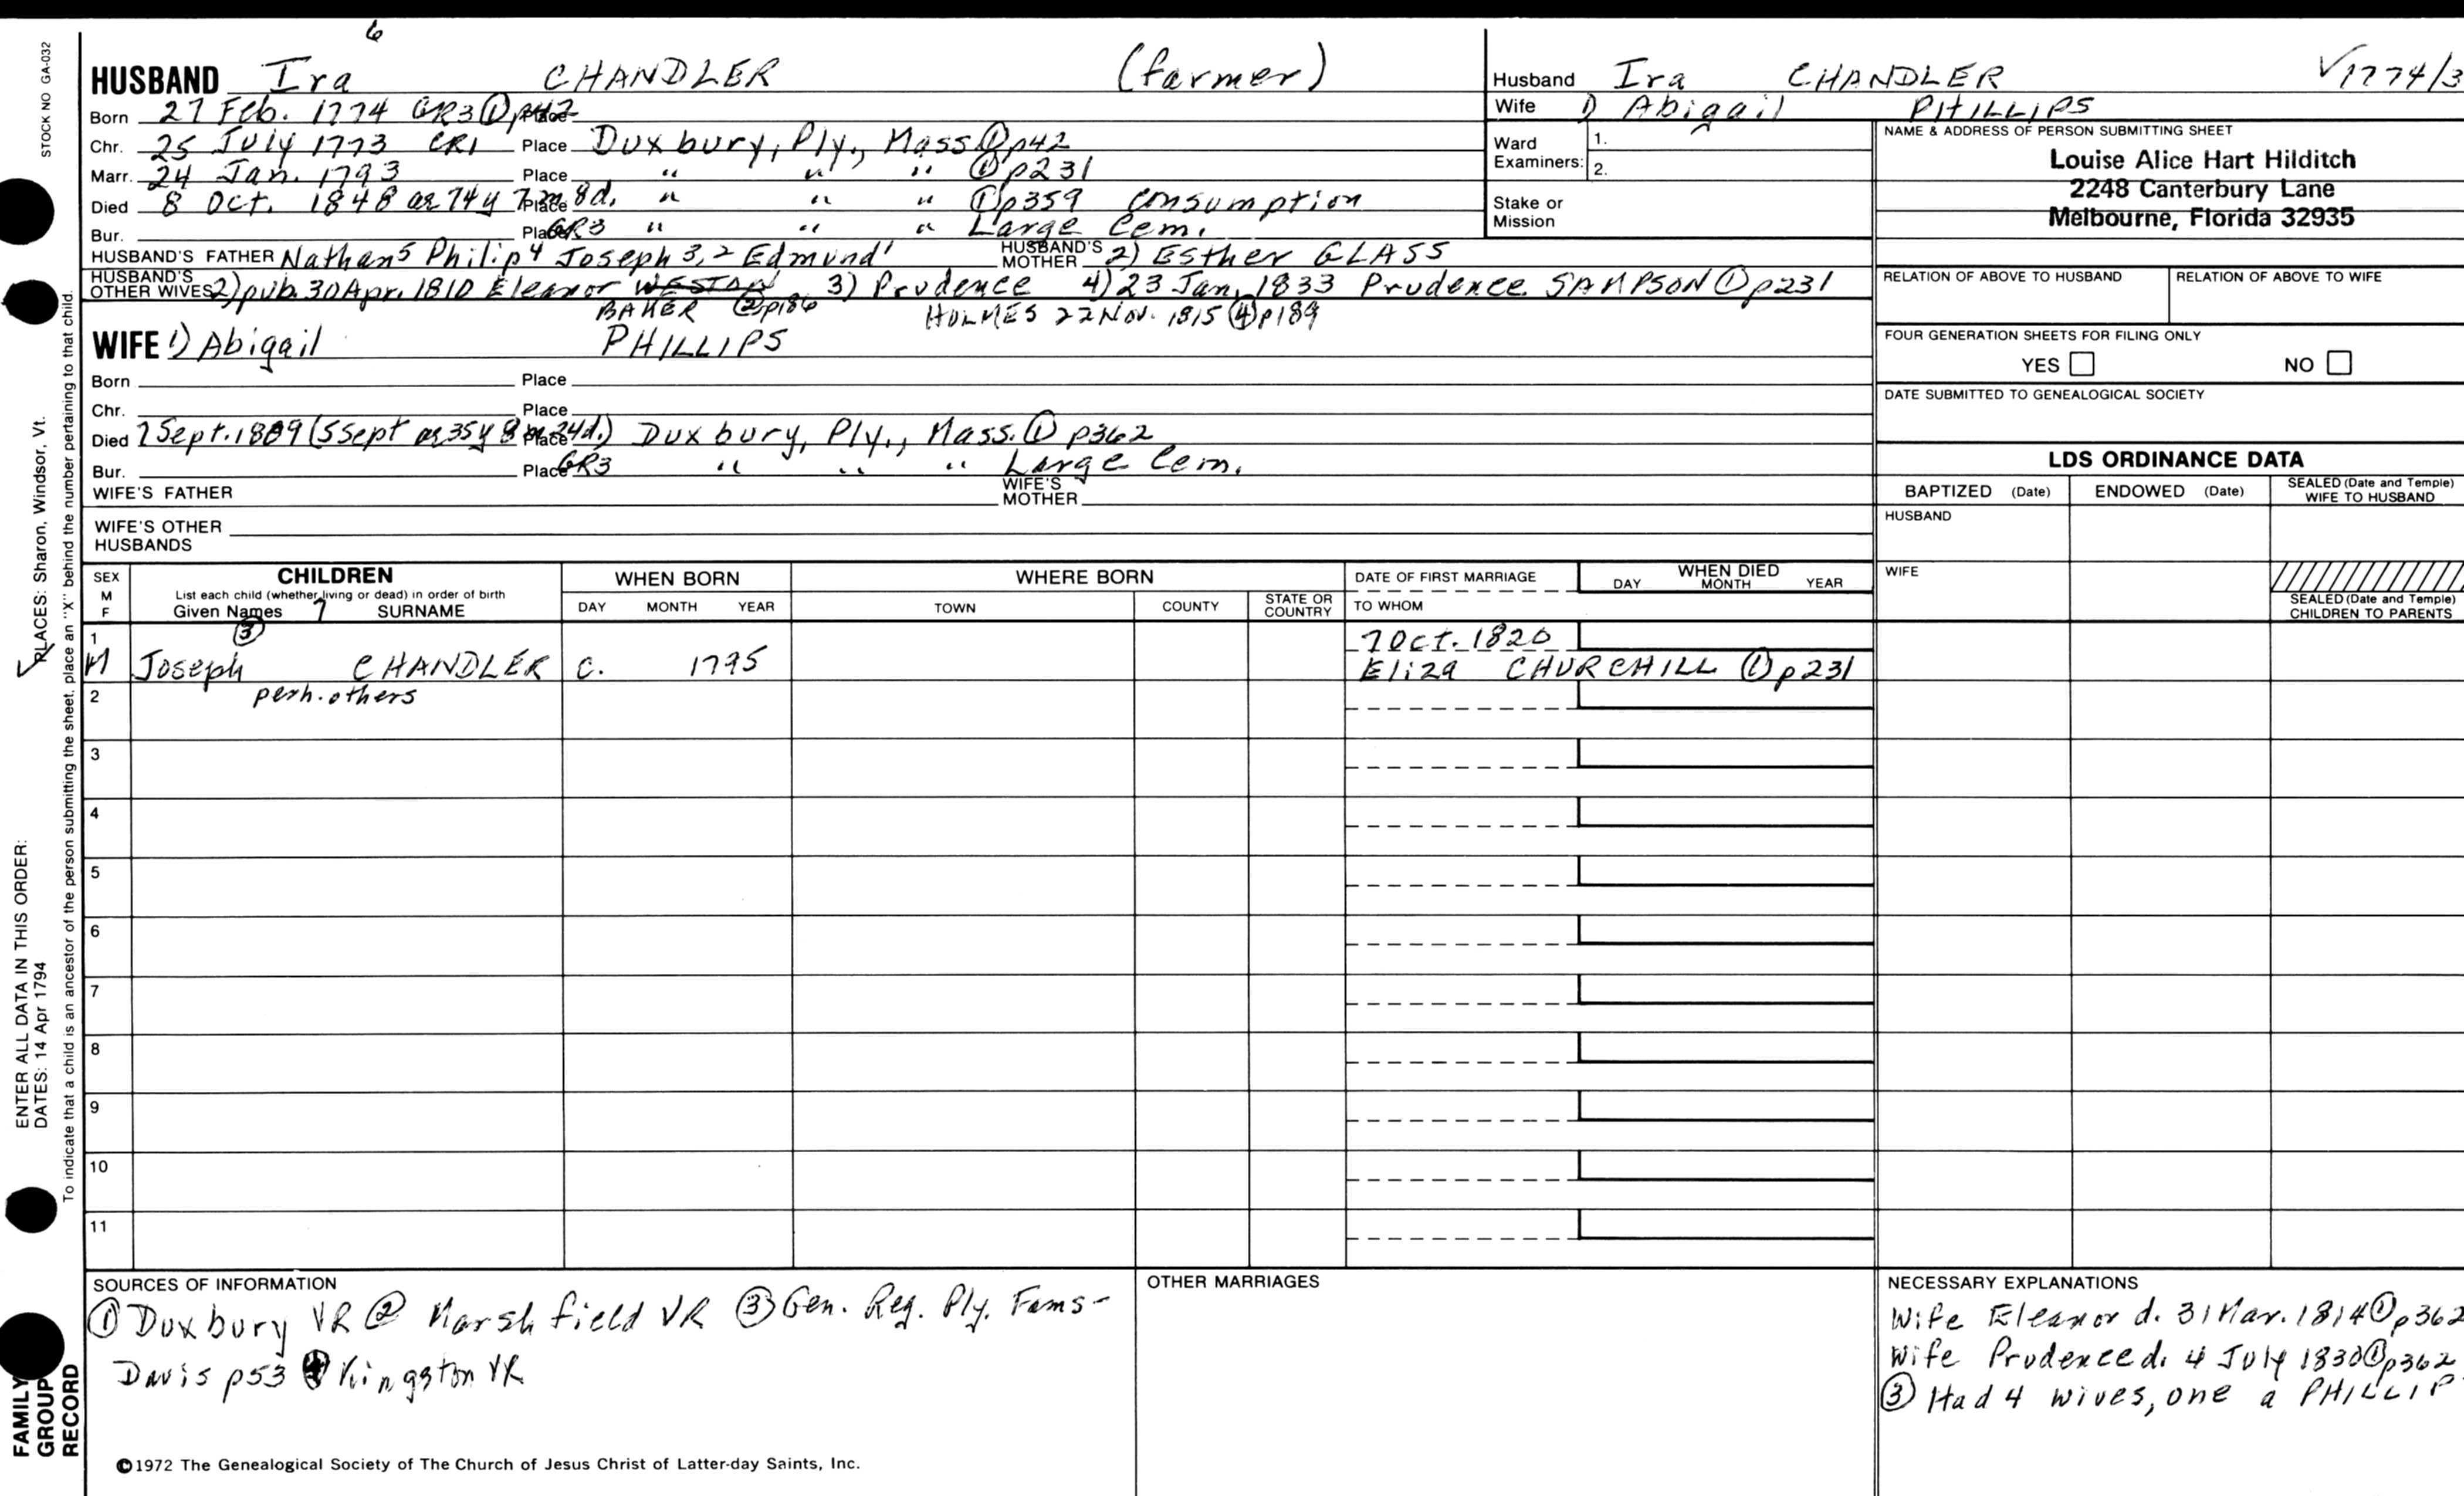 6
HUSBAND Ira CHANDLER (farmer)
Born 27 Feb. 1774 GR3 ① p42 Place
Chr. 25 July 1773 CR1 Place Duxbury, Ply., Mass ① p42
Marr. 24 Jan. 1793 Place " " " ① p231
Died 8 Oct. 1848 ae 74y 7m 8d. Place " " " ① p359 consumption
Bur. Place GR3 " " " Large Cem.
HUSBAND'S FATHER Nathan5 Philip4 Joseph 3,2 Edmund1 HUSBAND'S MOTHER 2) Esther GLASS
HUSBAND'S OTHER WIVES 2) pub. 30 Apr. 1810 Eleanor WESTON 3) Prudence 4) 23 Jan. 1833 Prudence SAMPSON ① p231
BAKER ② p186 HOLMES 22 Nov. 1815 ④ p189
WIFE 1) Abigail PHILLIPS
Born Place
Chr. Place
Died 7 Sept. 1809 (5 Sept ae 35y 8m 24d.) Place Duxbury, Ply., Mass. ① p362
Bur. Place GR3 " " " Large Cem.
WIFE'S FATHER WIFE'S MOTHER
WIFE'S OTHER HUSBANDS
Husband Ira CHANDLER √1774/3
Wife 1) Abigail PHILLIPS
Ward Examiners: 1.
2.
Stake or Mission
NAME & ADDRESS OF PERSON SUBMITTING SHEET
Louise Alice Hart Hilditch
2248 Canterbury Lane
Melbourne, Florida 32935
RELATION OF ABOVE TO HUSBAND RELATION OF ABOVE TO WIFE
FOUR GENERATION SHEETS FOR FILING ONLY
YES NO
DATE SUBMITTED TO GENEALOGICAL SOCIETY
LDS ORDINANCE DATA
BAPTIZED (Date) ENDOWED (Date) SEALED (Date and Temple) WIFE TO HUSBAND
HUSBAND
WIFE
SEALED (Date and Temple) CHILDREN TO PARENTS
SEX M F CHILDREN WHEN BORN WHERE BORN DATE OF FIRST MARRIAGE WHEN DIED
List each child (whether living or dead) in order of birth
Given Names 7 SURNAME DAY MONTH YEAR TOWN COUNTY STATE OR COUNTRY TO WHOM DAY MONTH YEAR
1 ③ 7 Oct. 1820
M Joseph CHANDLER c. 1795 Eliza CHURCHILL ① p231
2 perh. others
3
4
5
6
7
8
9
10
11
SOURCES OF INFORMATION
① Duxbury VR ② Marshfield VR ③ Gen. Reg. Ply. Fams-
Davis p53 ④ Kingston VR
©1972 The Genealogical Society of The Church of Jesus Christ of Latter-day Saints, Inc.
OTHER MARRIAGES
NECESSARY EXPLANATIONS
Wife Eleanor d. 31 Mar. 1814 ① p362
Wife Prudence d. 4 July 1830 ① p362
③ Had 4 wives, one a PHILLIP
STOCK NO GA-032
PLACES: Sharon, Windsor, Vt.
ENTER ALL DATA IN THIS ORDER:
DATES: 14 Apr 1794
To indicate that a child is an ancestor of the person submitting the sheet, place an "X" behind the number pertaining to that child.
FAMILY GROUP RECORD